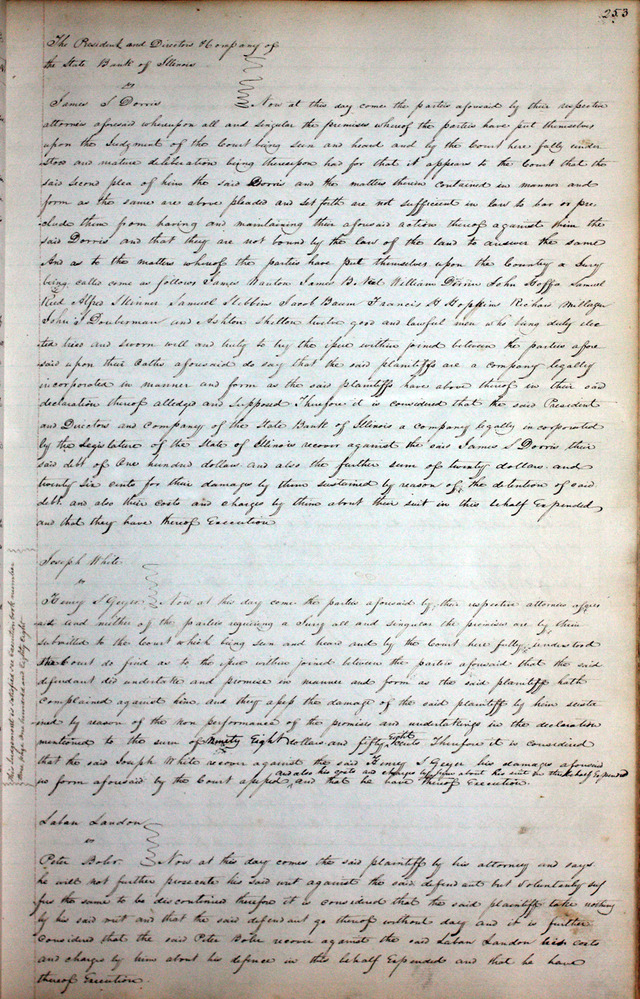 253
The President and Directors & Company of
the State Bank of Illinois
vs
James S Dorris Now at this day come the parties aforesaid by their respective
attornies aforesaid whereupon all and singular the premises whereof the parties have put themselves
upon the Judgment of the Court being seen and heard and by the Court here fully under
stood and mature deliberation being thereupon had for that it appears to the Court that the
said second plea of him the said Dorris and the matters therein contained in manner and
form as the same are above pleaded and set forth are not sufficient in law to bar or pre-
clude them from having and maintaining their aforesaid action thereof against him the
said Dorris and that they are not bound by the law of the land to answer the same
And as to the matters whereof the parties have put themselves upon the Country a Jury
being called come as follows James James B Neal William Dorris John Samuel
Reid Alfred Skinner Samuel Stebbins Jacob Baum Francis H Hopkins Richard
John and Ashton Shelton twelve good and lawful men who being duly elec
ted tried and sworn well and truly to try the issue within joined between the parties afore
said upon their Oaths aforesaid do say that the said plaintiffs are a company legally
incorporated in manner and form as the said plaintiffs have above thereof in their said
declaration thereof alledged and supposed Therefore it is considered that the said President
and Directors and company of the State Bank of Illinois a company legally incorporated
by the Legislature of the State of Illinois recover against the said James S Dorris their
said debt of One hundred dollars and also the further sum of twenty dollars and
twenty six cents for their damages by them sustained by reason of the detention of said
debt and also their costs and charges by them about their suit in this behalf Expended
and that they have thereof Execution
Joseph White
vs
Henry S Geyer Now at this day come the parties aforesaid by their respective attornies afore
said and neither of the parties requiring a Jury all and singular the premises are by them
submitted to the Court which being seen and heard and by the Court here fully understood
The Court do find as to the issue within joined between the parties aforesaid that the said
defendant did undertake and promise in manner and form as the said plaintiff hath
complained against him and they assess the damage of the said plaintiff by him sustai
ned by reason of the non performance of the promises and undertakings in the declaration
mentioned to the sum of Ninety Eight dollars and fifty Eight cents Therefore it is considered
that the said Joseph White recover against the said Henry S Geyer his damages aforesaid
in form aforesaid by the Court assessed and also his costs and charges by him about his suit in this behalf Expended and that he have thereof Execution
This Judgement is satisfied see Execution book number
One page One hundred and Eighty Eight
Laban Landon
vs
Peter Bohr Now at this day comes the said plaintiff by his attorney and says
he will not further prosecute his said writ against the said defendant but voluntarily suf
fers the same to be discontinued therefore it is considered that the said plaintiff take nothing
by his said writ and that the said defendant go thereof without day and it is further
considered that the said Peter Bohr recover against the said Laban Landon his costs
and charges by him about his defence in this behalf Expended and that he have
thereof Execution.